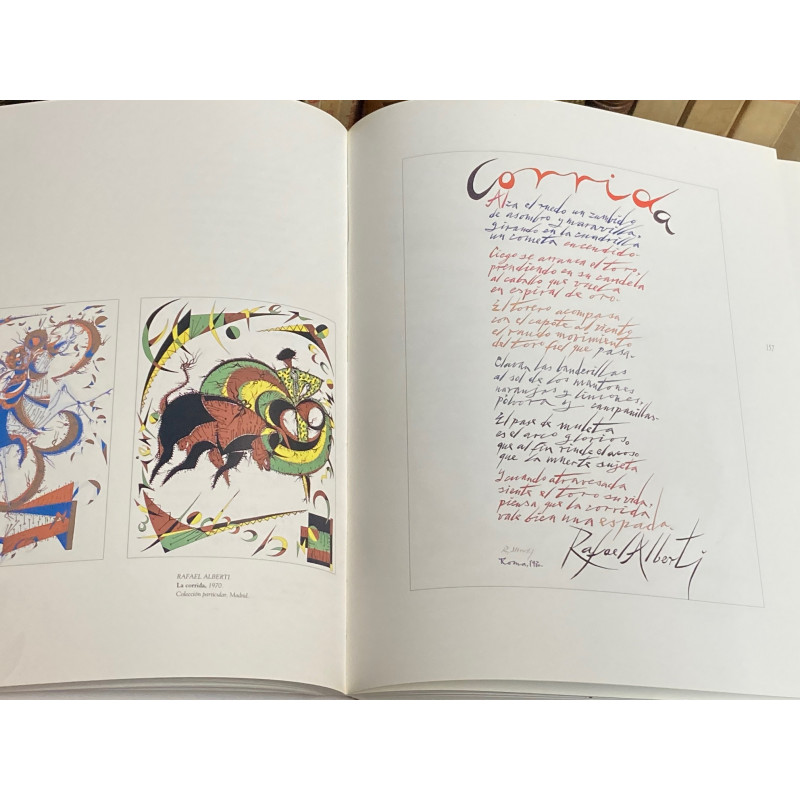 RAFAEL ALBERTI
La corrida, 1970.
Colección particular. Madrid.
Corrida
Alza el ruedo un zumbido
de asombro y maravilla,
girando en la cuadrilla
un cometa encendido.
Ciego se arranca el toro,
prendiendo en su candela
al caballo que vuela
en espiral de oro.
El torero acompasa
con el capote al viento
el raudo movimiento
del toro fiel que pasa.
Clavan las banderillas
al sol de los mantones
naranjas y limones,
pólvora y campanillas.
El pase de muleta
es el arco glorioso
que al fin rinde el acoso
que la muerte sujeta
y cuando atravesada
siente el toro su vida,
piensa que la corrida
vale bien una espada.
Rafael Alberti
Roma,